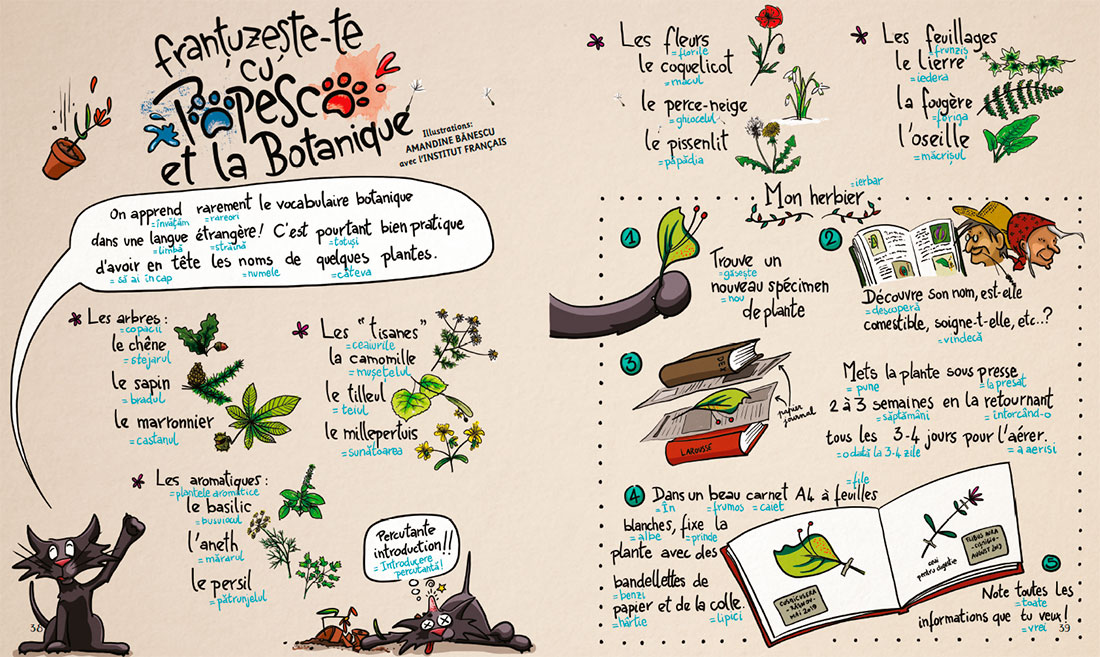 franțuzește-te
cu
Popesco
et la Botanique
Illustrations:
AMANDINE BĂNESCU
avec l'INSTITUT FRANÇAIS
On apprend rarement le vocabulaire botanique
=învățăm =rareori
dans une langue étrangère! C'est pourtant bien pratique
=limbă =străină =totuși
d'avoir en tête les noms de quelques plantes.
=să ai în cap =numele =câteva
Les arbres:
=copacii
le chêne
=stejarul
le sapin
=bradul
le marronnier
=castanul
Les "tisanes"
=ceaiurile
la camomille
=mușețelul
le tilleul
=teiul
le millepertuis
=sunătoarea
Les aromatiques:
=plantele aromatice
le basilic
=busuiocul
l'aneth
=mărarul
le persil
=pătrunjelul
Percutante
introduction!!
=Introducere
percutantă!
38
Les fleurs
=florile
le coquelicot
=macul
le perce-neige
=ghiocelul
le pissenlit
=păpădia
Les feuillages
=frunziș
le lierre
=iedera
la fougère
=feriga
l'oseille
=măcrișul
Mon herbier
=ierbar
1
Trouve un
=găsește
nouveau spécimen
=nou
de plante
2
Découvre son nom, est-elle
=descoperă
comestible, soigne-t-elle, etc..?
=vindecă
3
DEX
LAROUSSE
papier
journal
Mets la plante sous presse
=pune =la presat
2 à 3 semaines en la retournant
=săptămâni =întorcând-o
tous les 3-4 jours pour l'aérer.
=o dată la 3-4 zile =a aerisi
4 Dans un beau carnet A4 à feuilles
=În =frumos =caiet =file
blanches, fixe la
=albe =prinde
plante avec des
bandellettes de
=benzi
papier et de la colle.
=hârtie =lipici
MAI 2019
AUGUST 2019
ceai
pentru digestie
5
Note toutes les
=toate
informations que tu veux!
=vrei
39